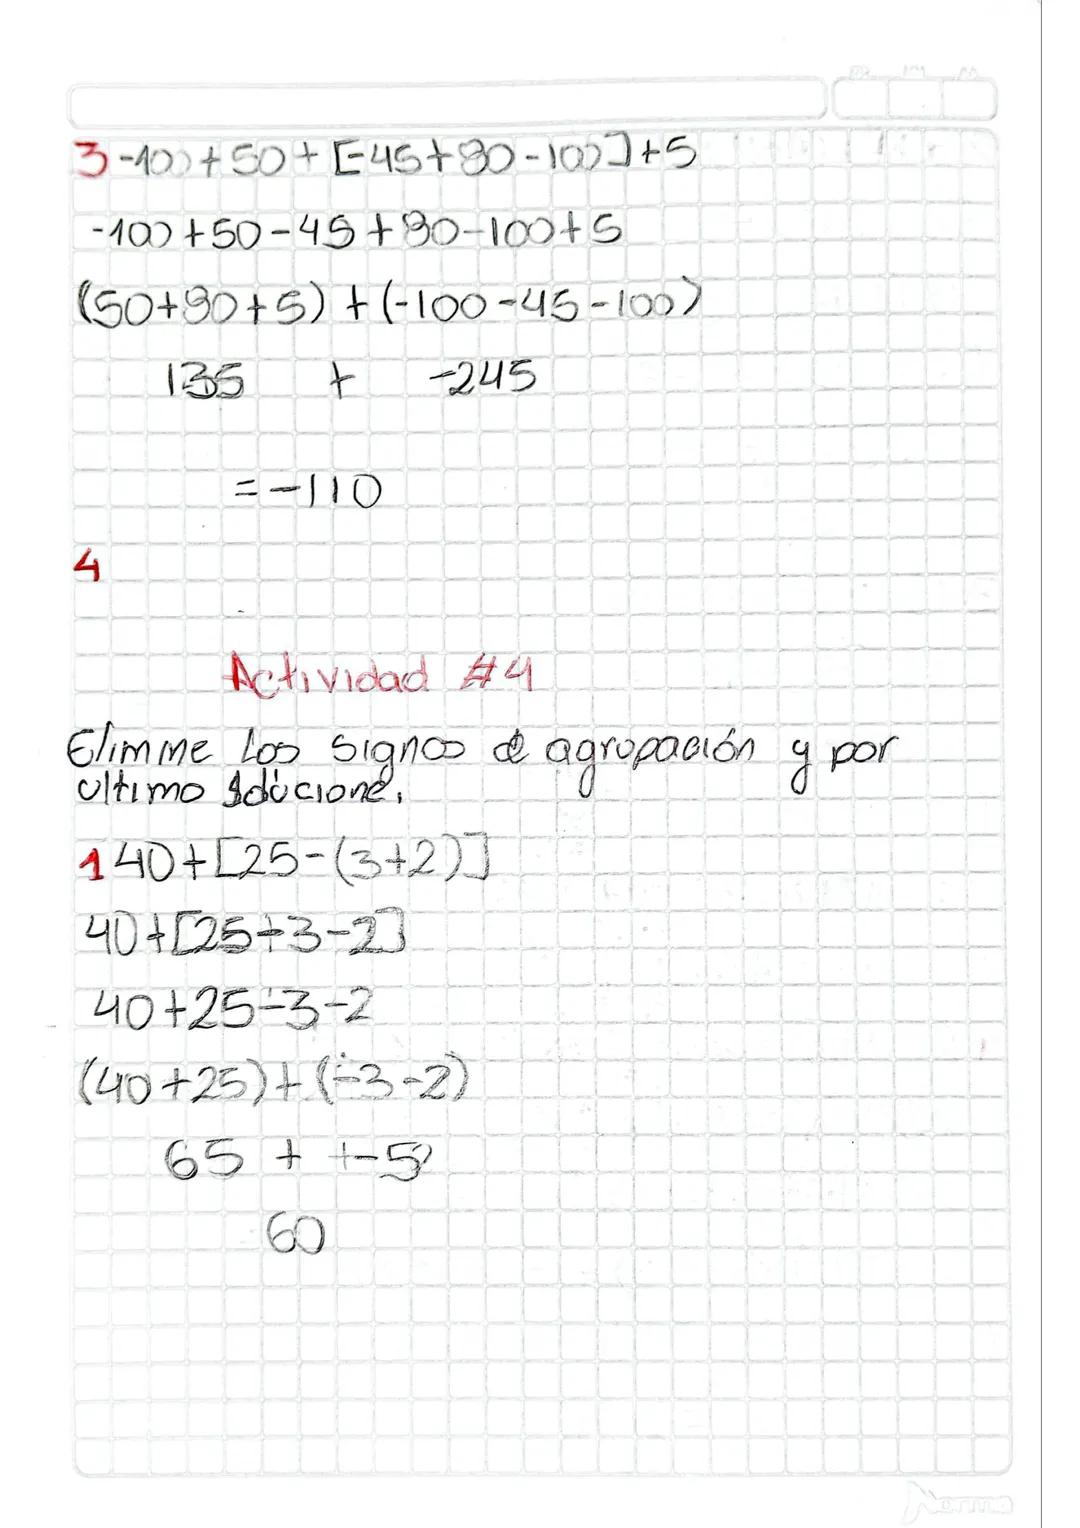 3 -100+50+[-45+80-100]+5
-100+50-45+80-100+5
(50+80+5)+(-100-45-100)
135 + -245
=-110
4
Actividad #4
Elimine los signos de agrupación y por
ultimo solucione.
1 40+[25-(3+2)]
40+[25-3-2]
40+25-3-2
(40+25)+(-3-2)
65 + -5
60
Norma